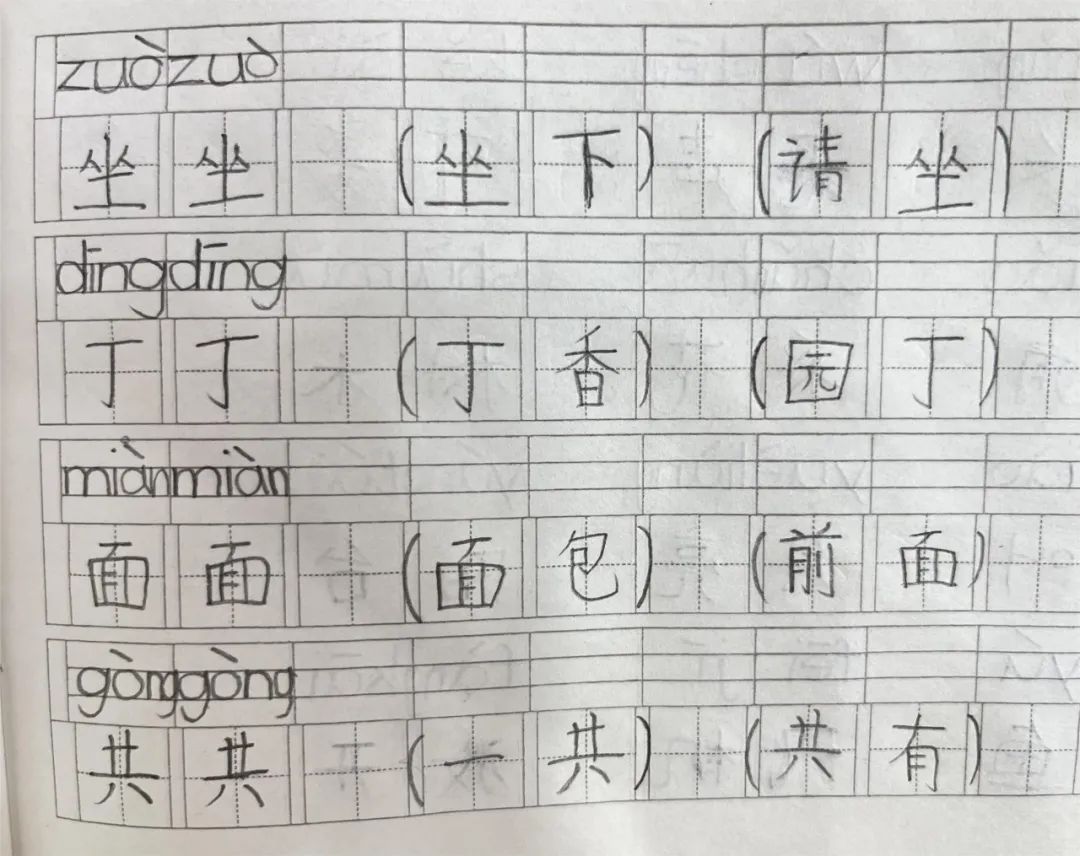 zuò zuò
坐 坐 (坐下) (请坐)
dīng dīng
丁 丁 (丁香) (园丁)
miàn miàn
面 面 (面包) (前面)
gòng gòng
共 共 (一共) (共有)